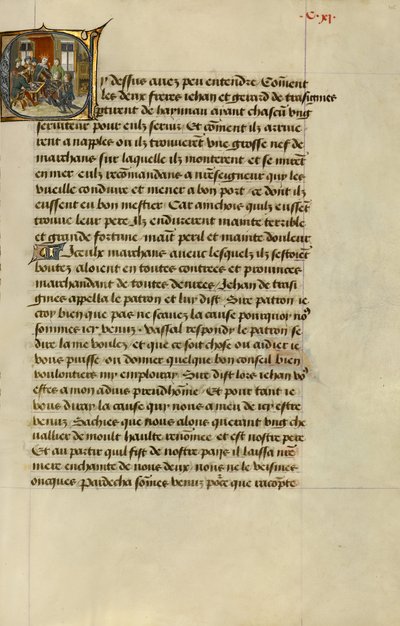 C. xj.
Cy dessus avez peu entendre Com̄ent
les deux freres iehan et gerard de trasignies
partirent de haynnau aiant chascun vng
seruiteur pour eulz seruir / Et com̄ent ilz arriue
rent a napples ou ilz trouuerent vne grosse nef de
marchans sur laquelle ilz monterent et se mirent
en mer eulz recom̄andans a nr̄e seigneur quy les
vueille conduire et mener a bon port / ce dont ilz
eussent eu bon mestier / Car ainchois quilz eussent
trouue leur pere Ilz endurerent mainte terrible
et grande fortune / maīt peril et mainte douleur
Iceulx marchans auenc lesquelz ilz sestoiēt
boutez aloient en toutes contrees et prouinces
marchandant de toutes denrees / Iehan de trasi
gnies appella le patron et luy dist / Sire patron ie
croy bien que pas ne scauez la cause pourquoy no9
sommes icy venuz / vassal respondy le patron se
dire la me voulez / et que ce soit chose ou aidier ie
vous puisse / ou donner quelque bon conseil bien
voulontiers my emploiray / Sire dist lors iehan vo9
estes a mon aduis preudhōme / Et pour tant ie
vous diray la cause quy nous a meu de icy estre
venuz / Sachies que nous alons querant vng che
uallier de moult haulte renōmee / et est nostre pere
Et au partir quil fist de nostre paijs il laissa nr̄e
mere enchainte de nous deux / nous ne le veismes
oncques / Pardecha som̄es venuz pour ce que racōpte